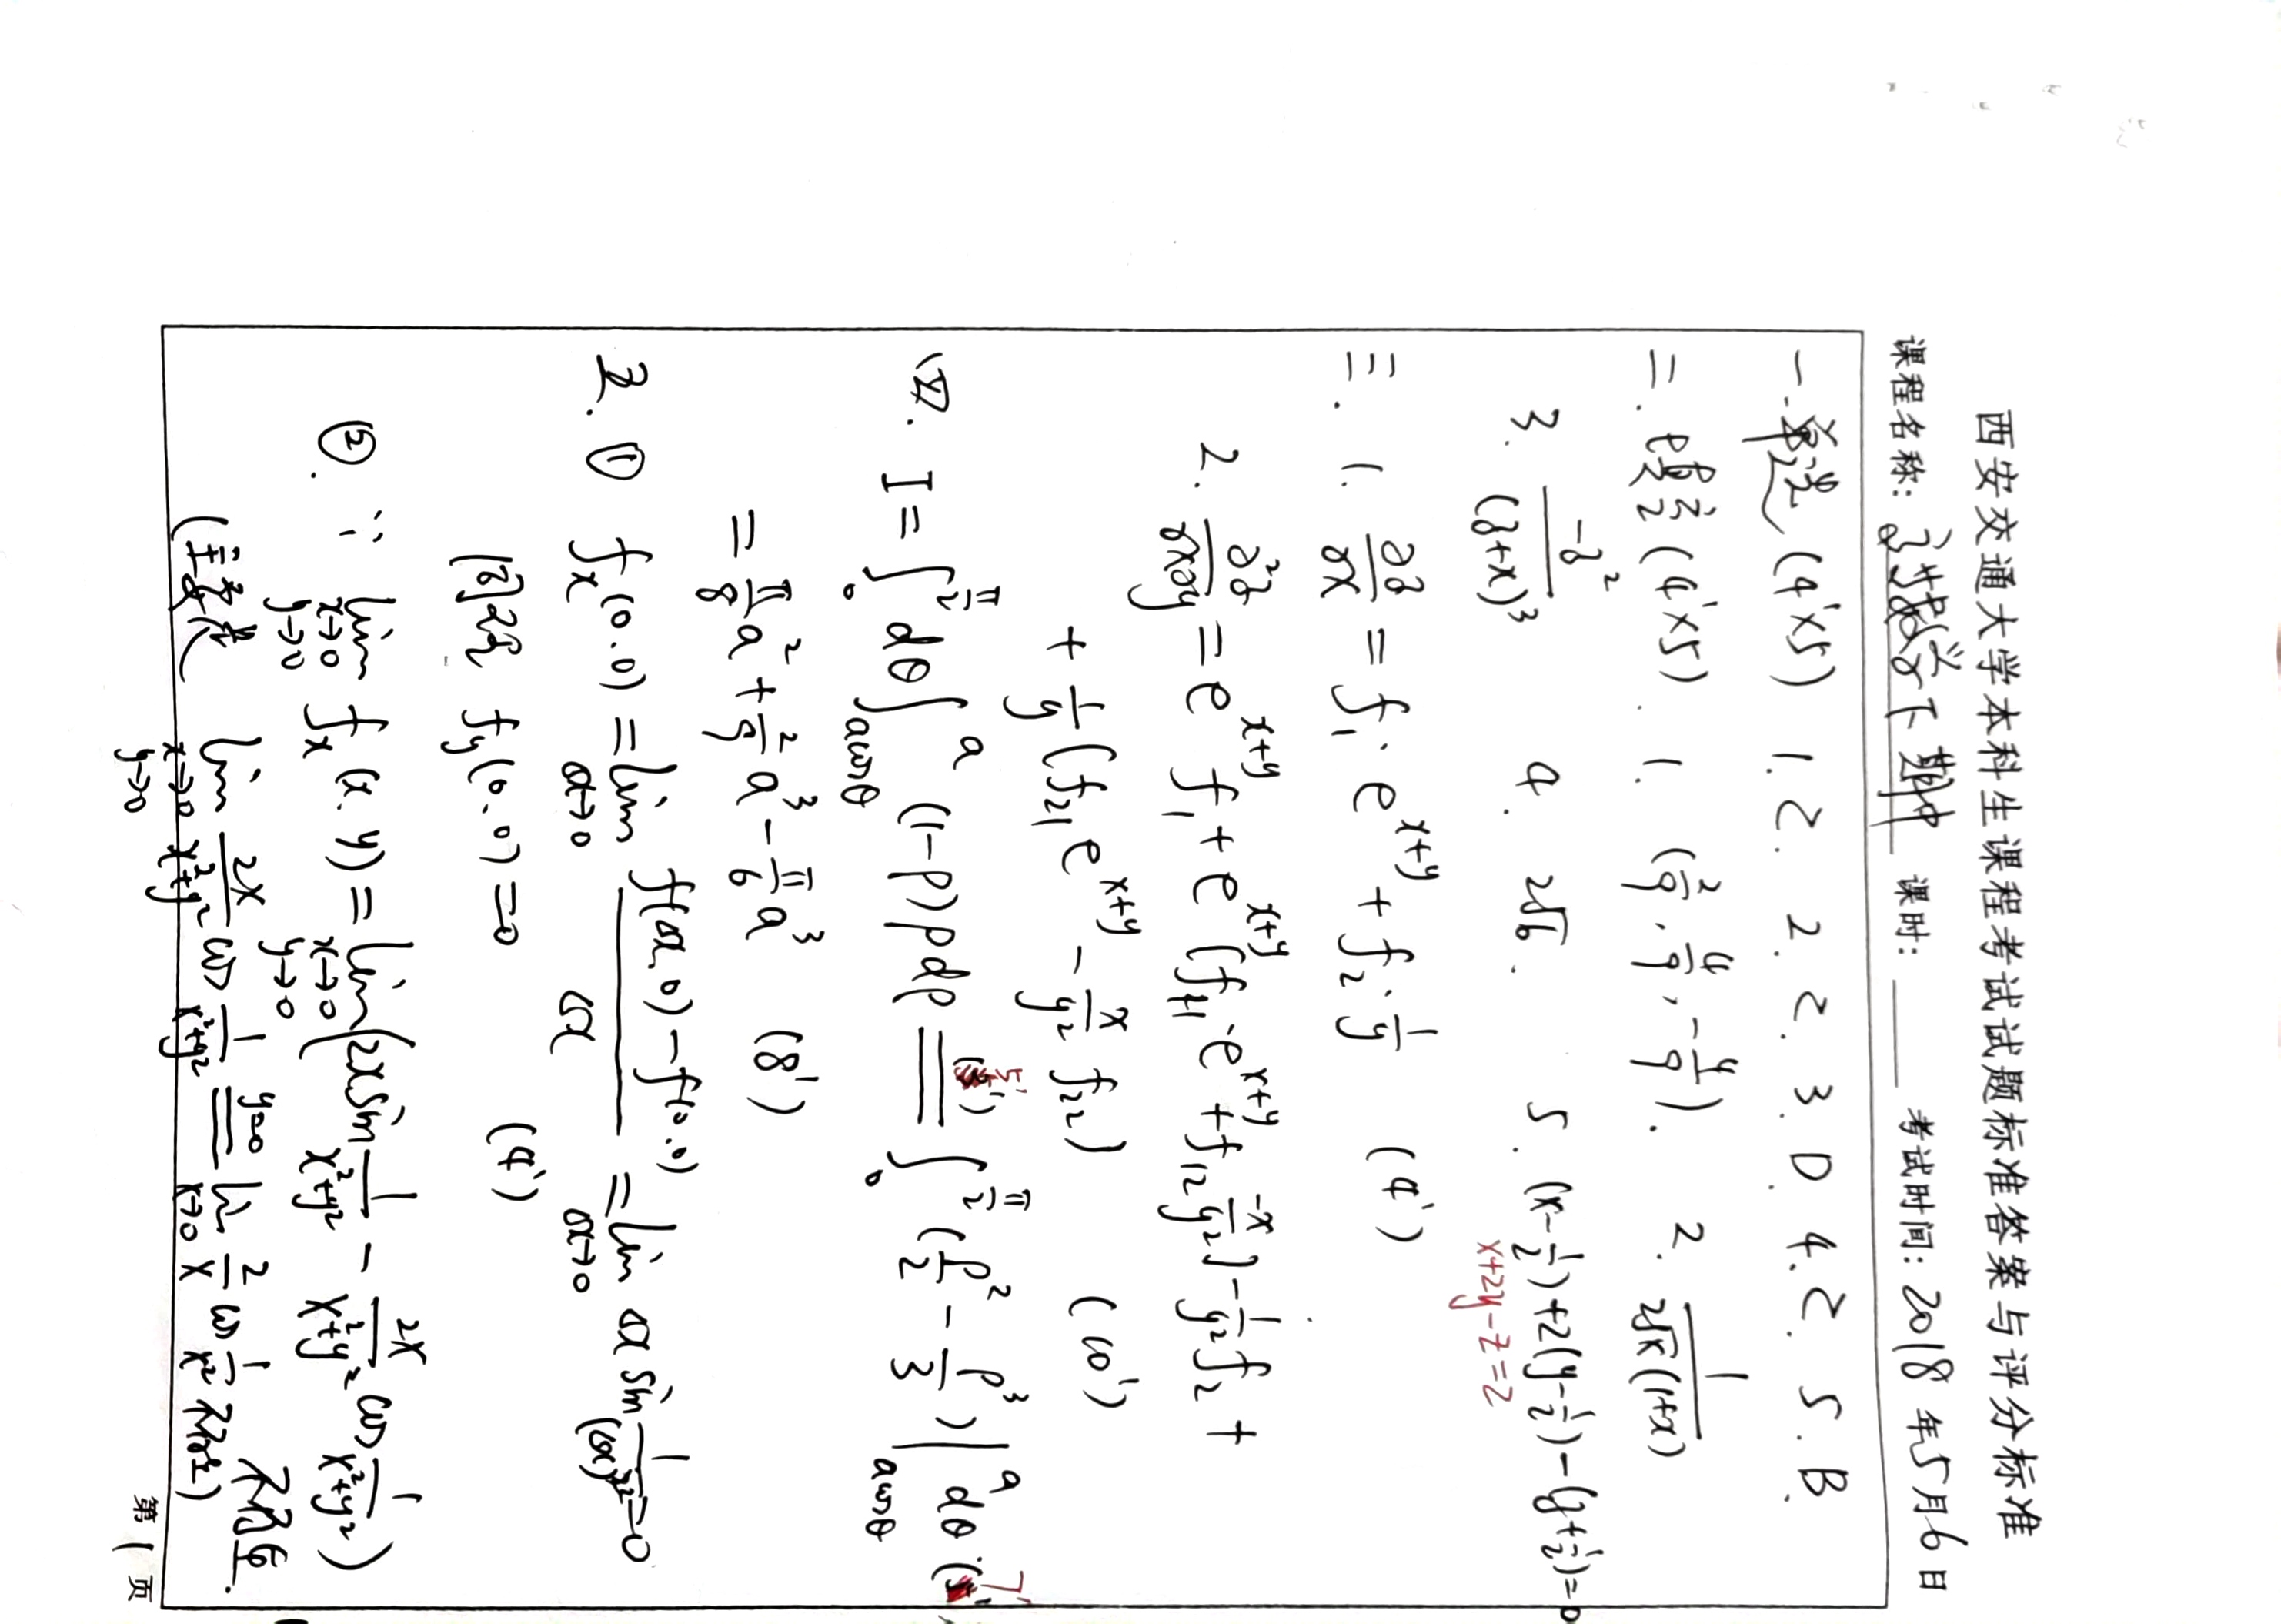 西安交通大学本科生课程考试试题标准答案与评分标准
课程名称: 高等数学下期中 课时: 考试时间: 2018 年 5 月 6 日
一. 单选 (4'×5) 1. C. 2. C. 3. D. 4. C. 5. B.
二. 填空 (4'×5). 1. (2/9, 4/9, -4/9). 2. 1/(2√x(1+x))
3. -z²/(z+x)³ 4. 2√6. 5. (x-1/2)+2(y-1/2)-(z+1/2)=0
x+2y-z=2
三. 1. ∂z/∂x = f₁·e^(x+y) + f₂·1/y (4')
2. ∂²z/∂x∂y = e^(x+y) f₁ + e^(x+y) [f₁₁·e^(x+y) + f₁₂ -x/y²] - 1/y² f₂ +
+ 1/y (f₂₁ e^(x+y) - x/y² f₂₂) (10')
四. I = ∫₀^(π/2) dθ ∫_(acosθ)^a (1-ρ)ρdρ = (5') ∫₀^(π/2) (ρ²/2 - ρ³/3)|_(acosθ)^a dθ (7')
= π/8 a² + 2/9 a³ - π/6 a³ (8')
五. ① fx(0.0) = lim Δx→0 (f(Δx.0) - f(0.0))/Δx = lim Δx→0 Δx sin 1/(Δx)² = 0
同理 fy(0.0) = 0 (4')
②. ∵ lim x→0 y→0 fx(x.y) = lim x→0 y→0 (2x sin 1/(x²+y²) - 2x/(x²+y²) cos 1/(x²+y²)) 不存在.
lim x→0 y→0 2x/(x²+y²) cos 1/(x²+y²) = y=0 lim x→0 2/x cos 1/x² 不存在)
第 1 页